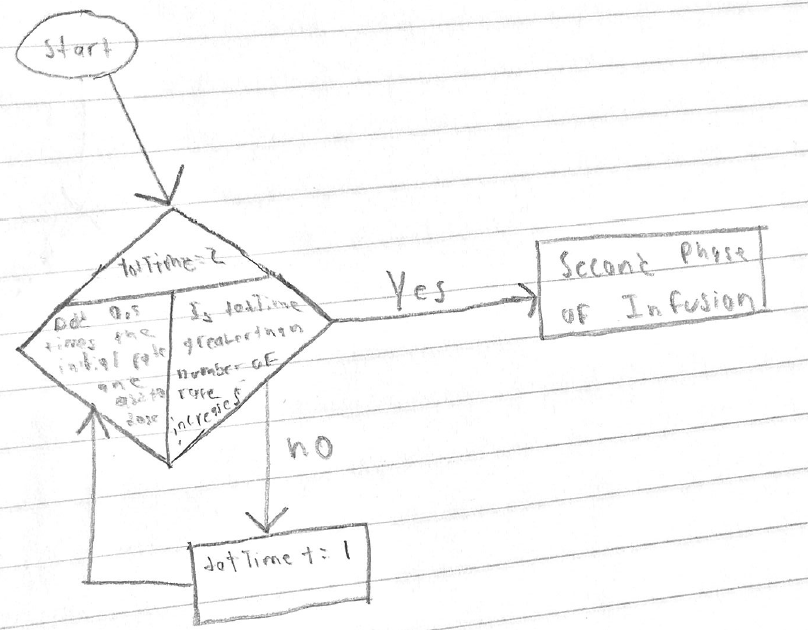 start
totTime = 2
times the
initial rate
Is totTime
greater than
number of
rate
increases
Yes
Second Phase
of Infusion
no
totTime += 1